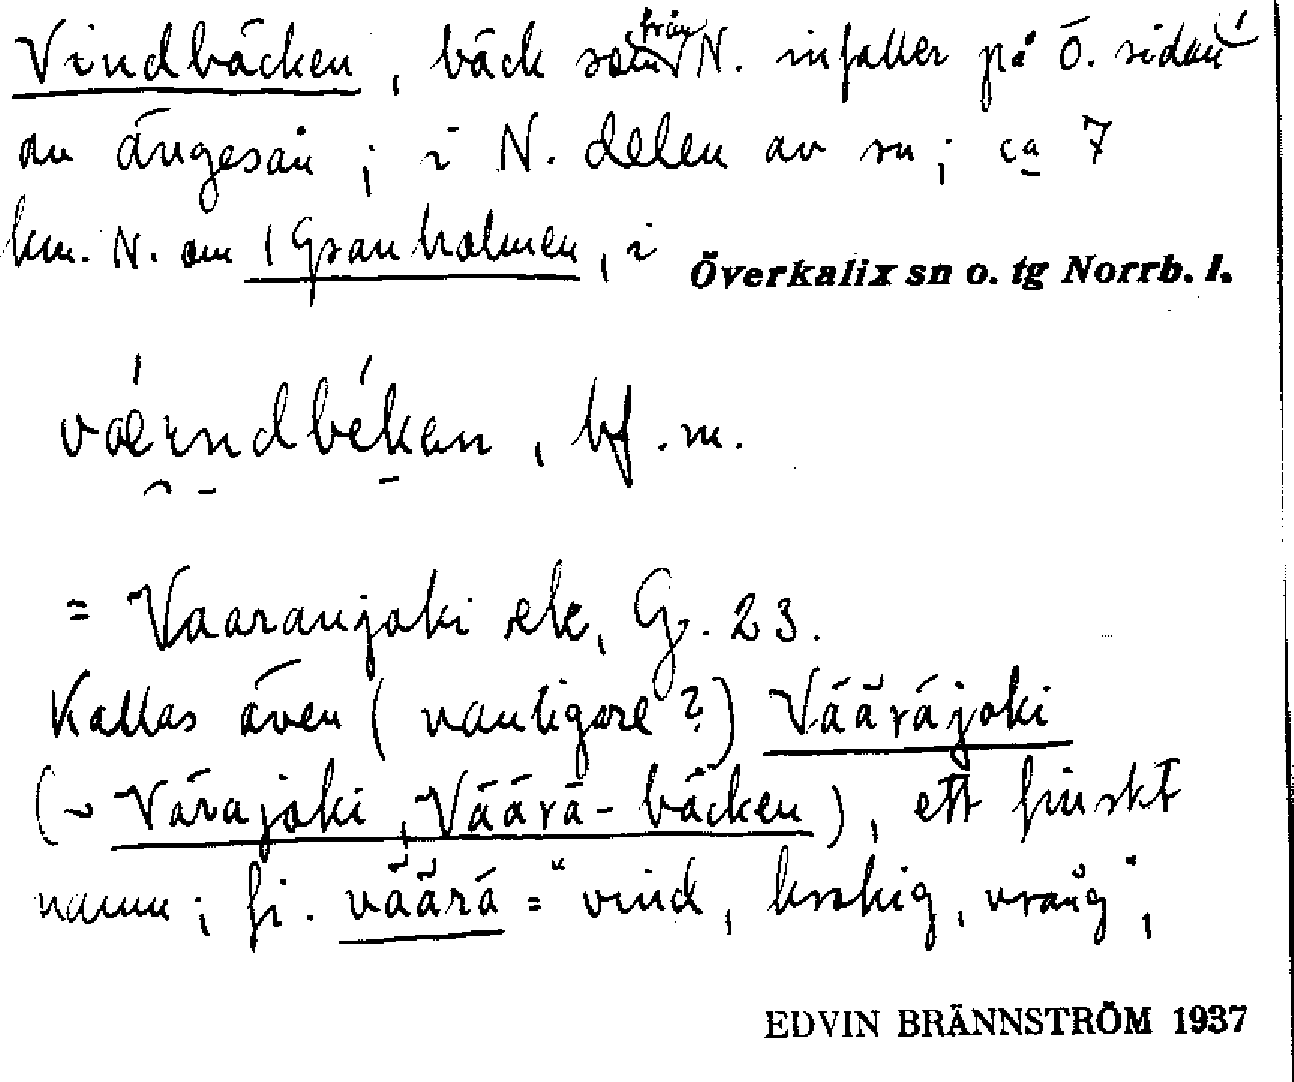 Vindbäcken, bäck som från N. infaller på ö. sidan i
av ängesån; i N. delen av sn; ca 7
km. N. om / Granholmen, i Överkalix sn o. tg Norrb. l.
væ̂rndbékan, bf. m.
= Vaaranjoki elc, G. 23.
Kallas även (vanligare?) Vääräjoki
(~ Värajoki, Väärä-bäcken), ett finskt
namn; fi. väärä = "vind, krokig, vrång",
EDVIN BRÄNNSTRÖM 1937